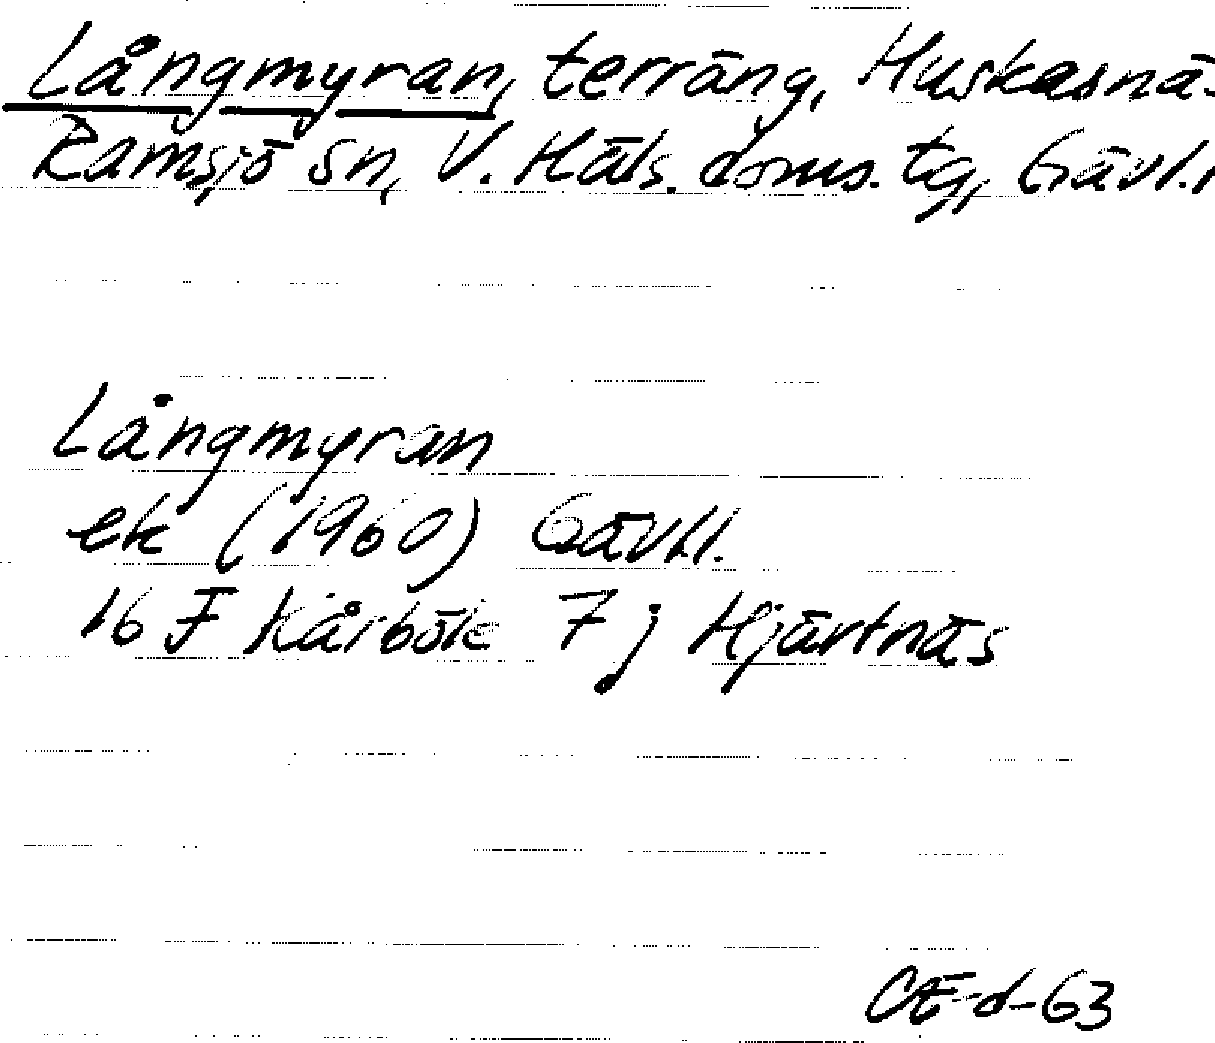 Långmyran, terräng, Huskasnä-
Ramsjö sn, V. Häls. doms. tg, Gävl.l
Långmyran
ek (1960) Gävl.l.
16 F Kårböle 7 j Hjärtnäs
CE-d-63